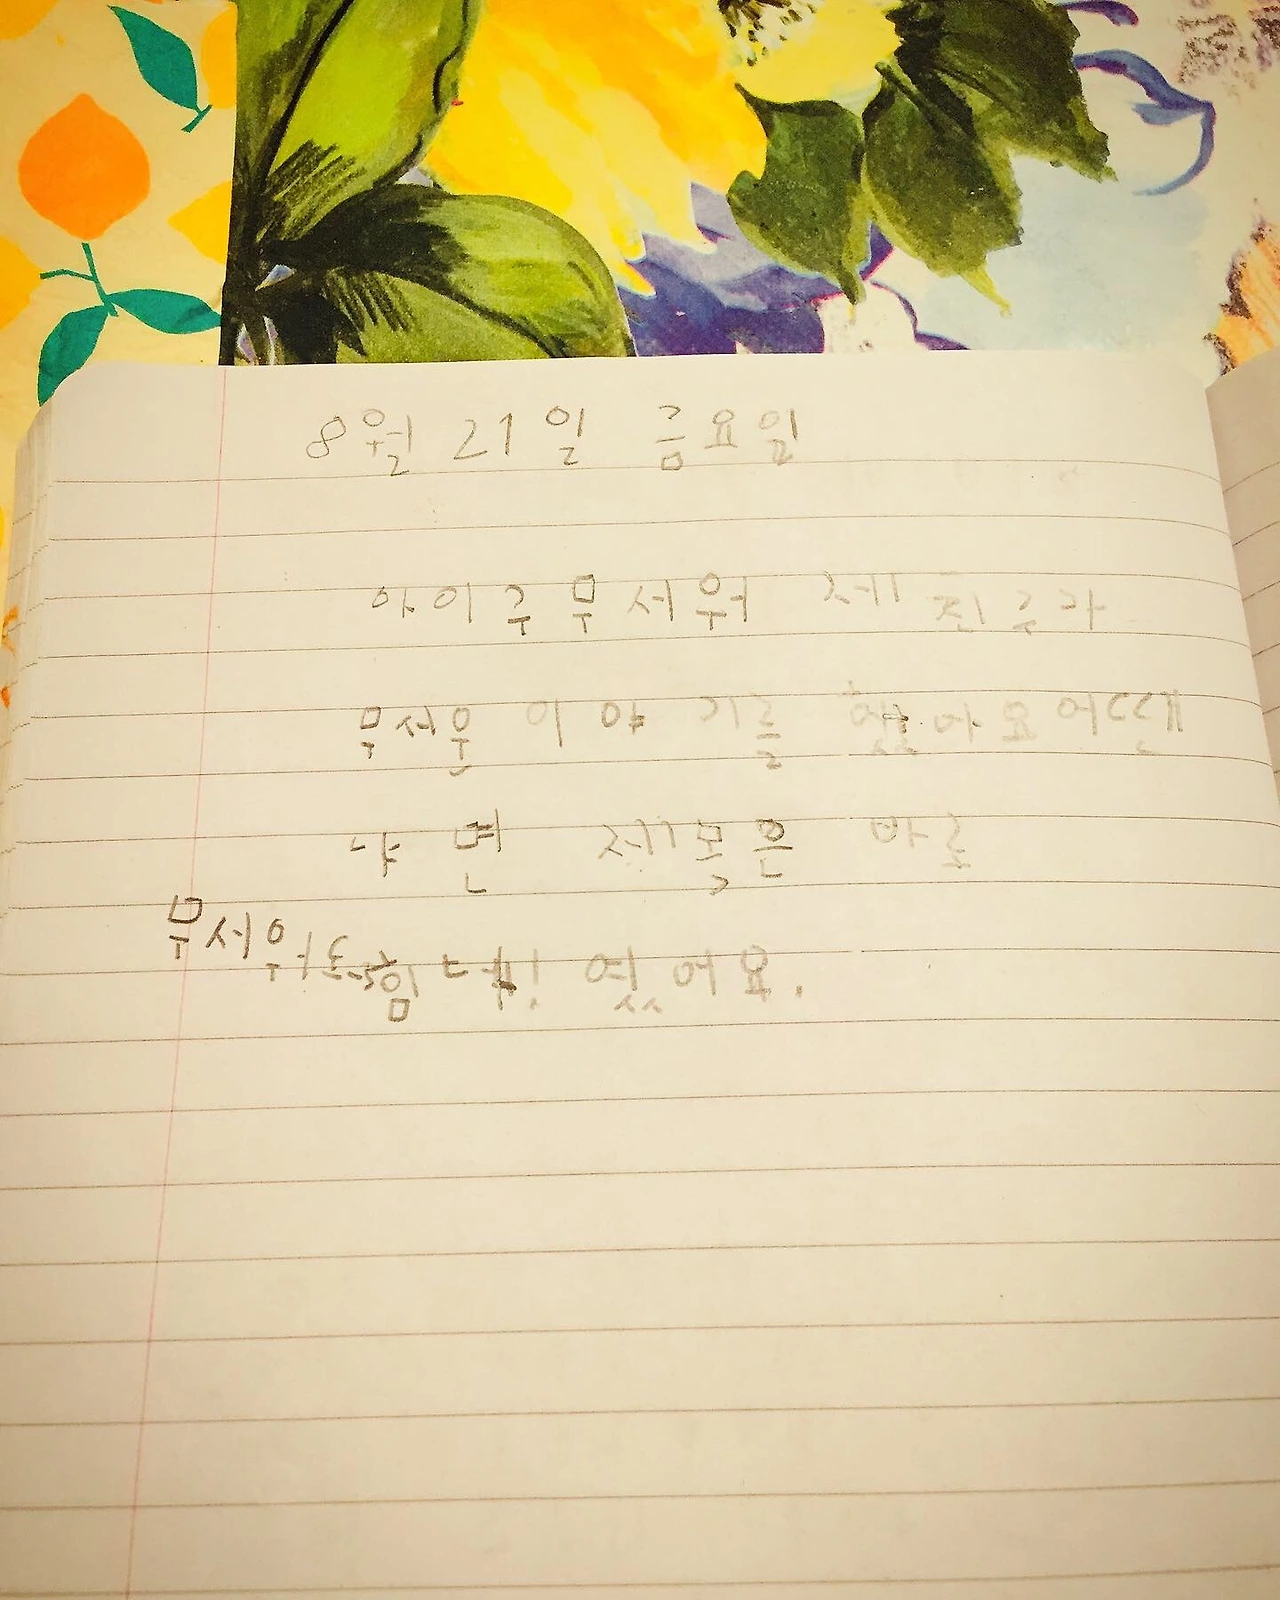 8월 21일 금요일
아이구 무서워 제 친구가
무서운 이야기를 했아요 어떻게
하면 제목은 바로
무서우 그 였어요.